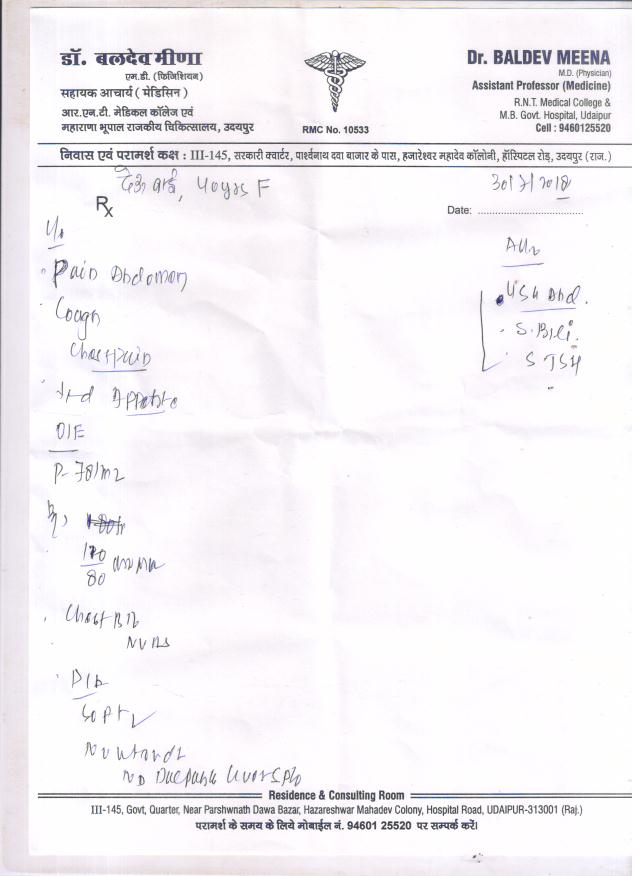 डॉ. बलदेव मीणा
एम.डी. (फिजिशियन)
सहायक आचार्य ( मेडिसिन )
आर.एन.टी. मेडिकल कॉलेज एवं
महाराणा भूपाल राजकीय चिकित्सालय, उदयपुर
RMC No. 10533
Dr. BALDEV MEENA
M.D. (Physician)
Assistant Professor (Medicine)
R.N.T. Medical College &
M.B. Govt. Hospital, Udaipur
Cell : 9460125520
निवास एवं परामर्श कक्ष : III-145, सरकारी क्वार्टर, पार्श्वनाथ दवा बाजार के पास, हजारेश्वर महादेव कॉलोनी, हॉस्पिटल रोड़, उदयपुर (राज.)
बाई, 40yrs F
Rx
Date:
Pain Abdomen
Cough
Chest pain
Appetite
O/E
P- 78/m2
80
Chest B/L
NVBS
P/A
Soft
Adv
USG Abd.
S. Bili.
S TSH
Residence & Consulting Room
III-145, Govt, Quarter, Near Parshwnath Dawa Bazar, Hazareshwar Mahadev Colony, Hospital Road, UDAIPUR-313001 (Raj.)
परामर्श के समय के लिये मोबाईल नं. 94601 25520 पर सम्पर्क करें।